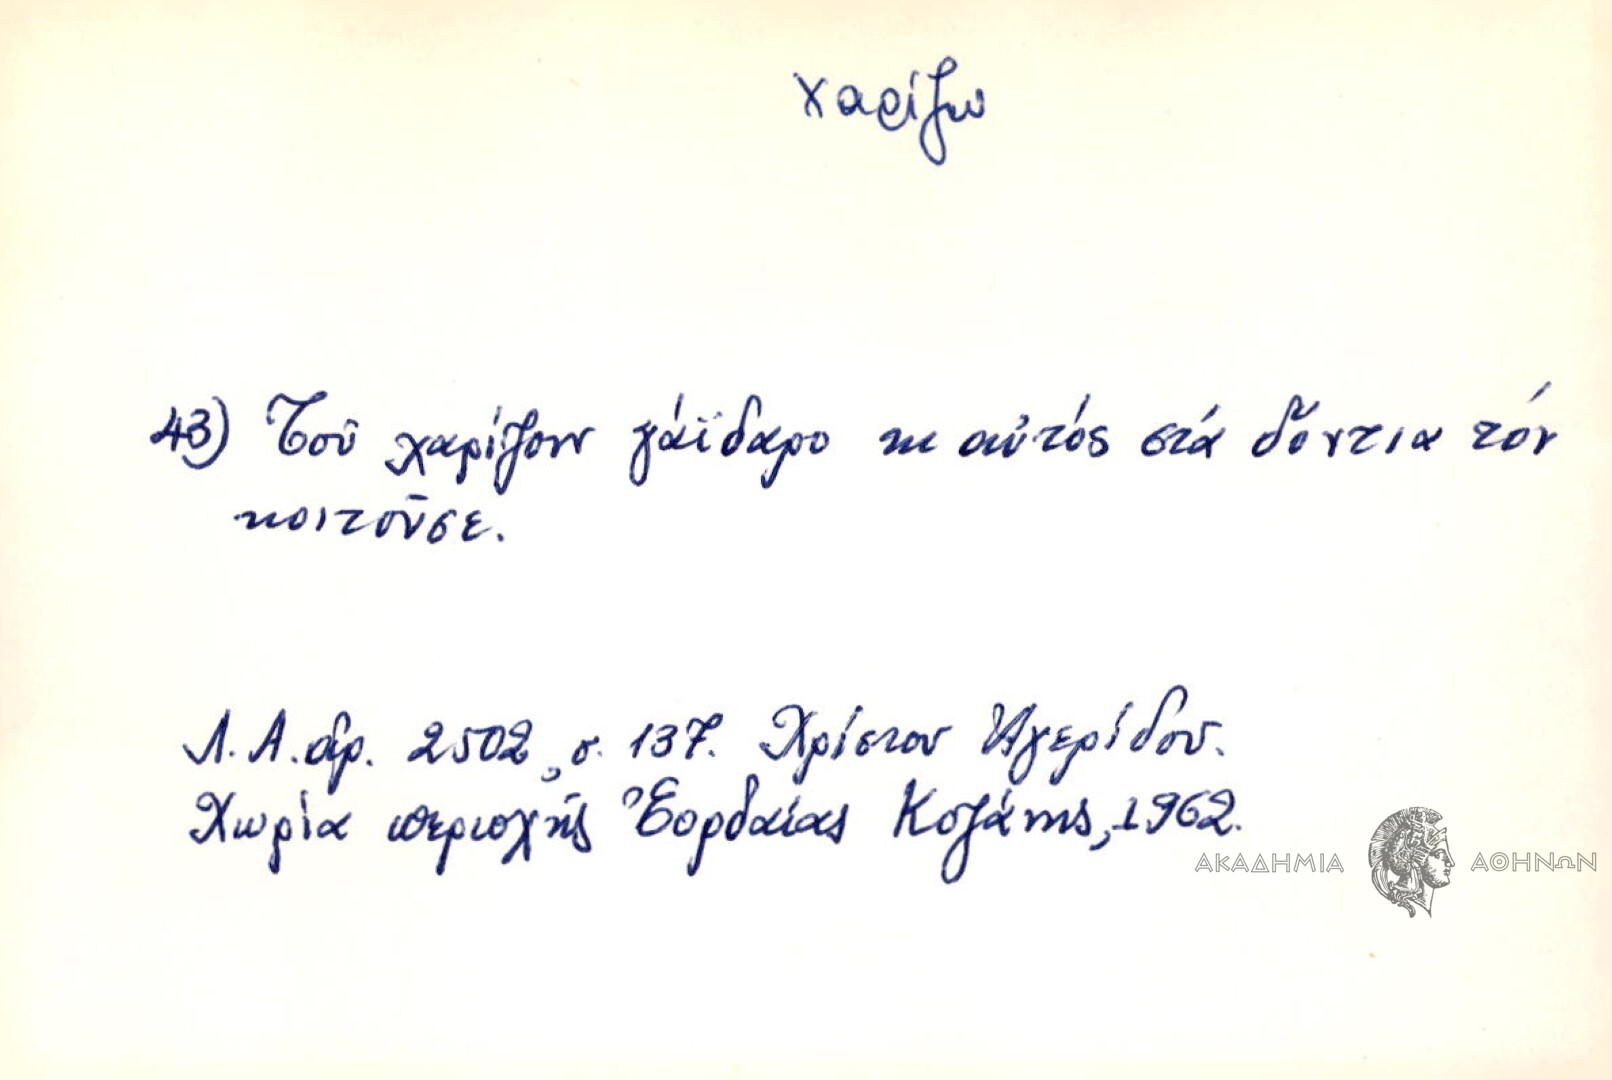 χαρίζω
43) Τοῦ χαρίζουν γάϊδαρο κι αὐτός στά δόντια τόν
κοιτοῦσε.
Λ.Α. ἀρ. 2502, σ. 137. Χρίστου Ἀγερίδου.
Χωρία περιοχῆς Ἑορδαίας Κοζάνης, 1962.
ΑΚΑΔΗΜΙΑ ΑΘΗΝΩΝ